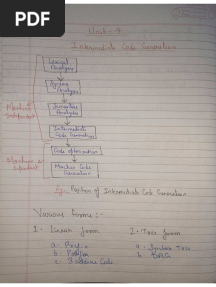 PDF
Unit - 4
Intermediate Code Generation
Lexical
Analysis
Syntax
Analysis
Semantic
Analysis
Intermediate
Code Generation
Code optimization
Machine Code
Generation
Machine
Independent
Machine
Fig: Position of Intermediate Code Generation
Various forms :-
1- Linear form 2- Tree form
a. a. Syntax Tree
b. Postfix b. DAG
c. 3 address Code